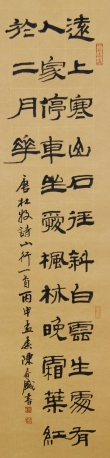 遠上寒山石徑斜白雲生處有
人家停車坐愛楓林晚霜葉紅
於二月華
唐杜牧詩山行一首丙申孟春陳盛書